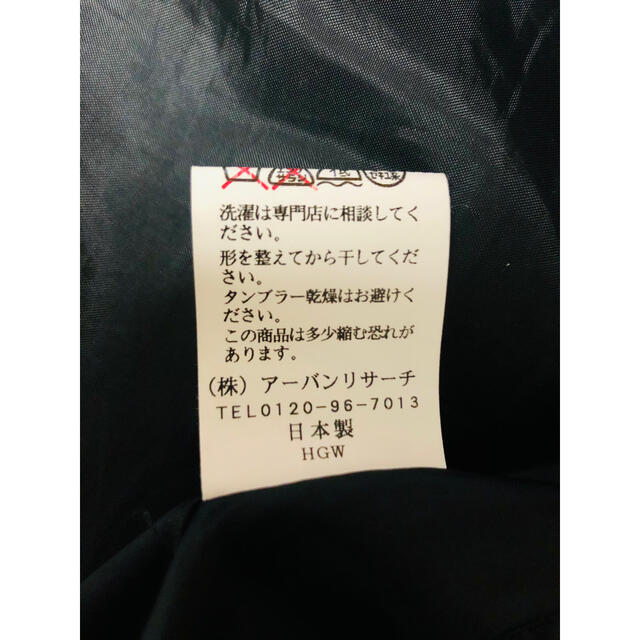 低
セキユ系
洗濯は専門店に相談してく
ださい。
形を整えてから干してくだ
さい。
タンブラー乾燥はお避けく
ださい。
この商品は多少縮む恐れが
あります。
(株) アーバンリサーチ
TEL0120-96-7013
日本製
HGW